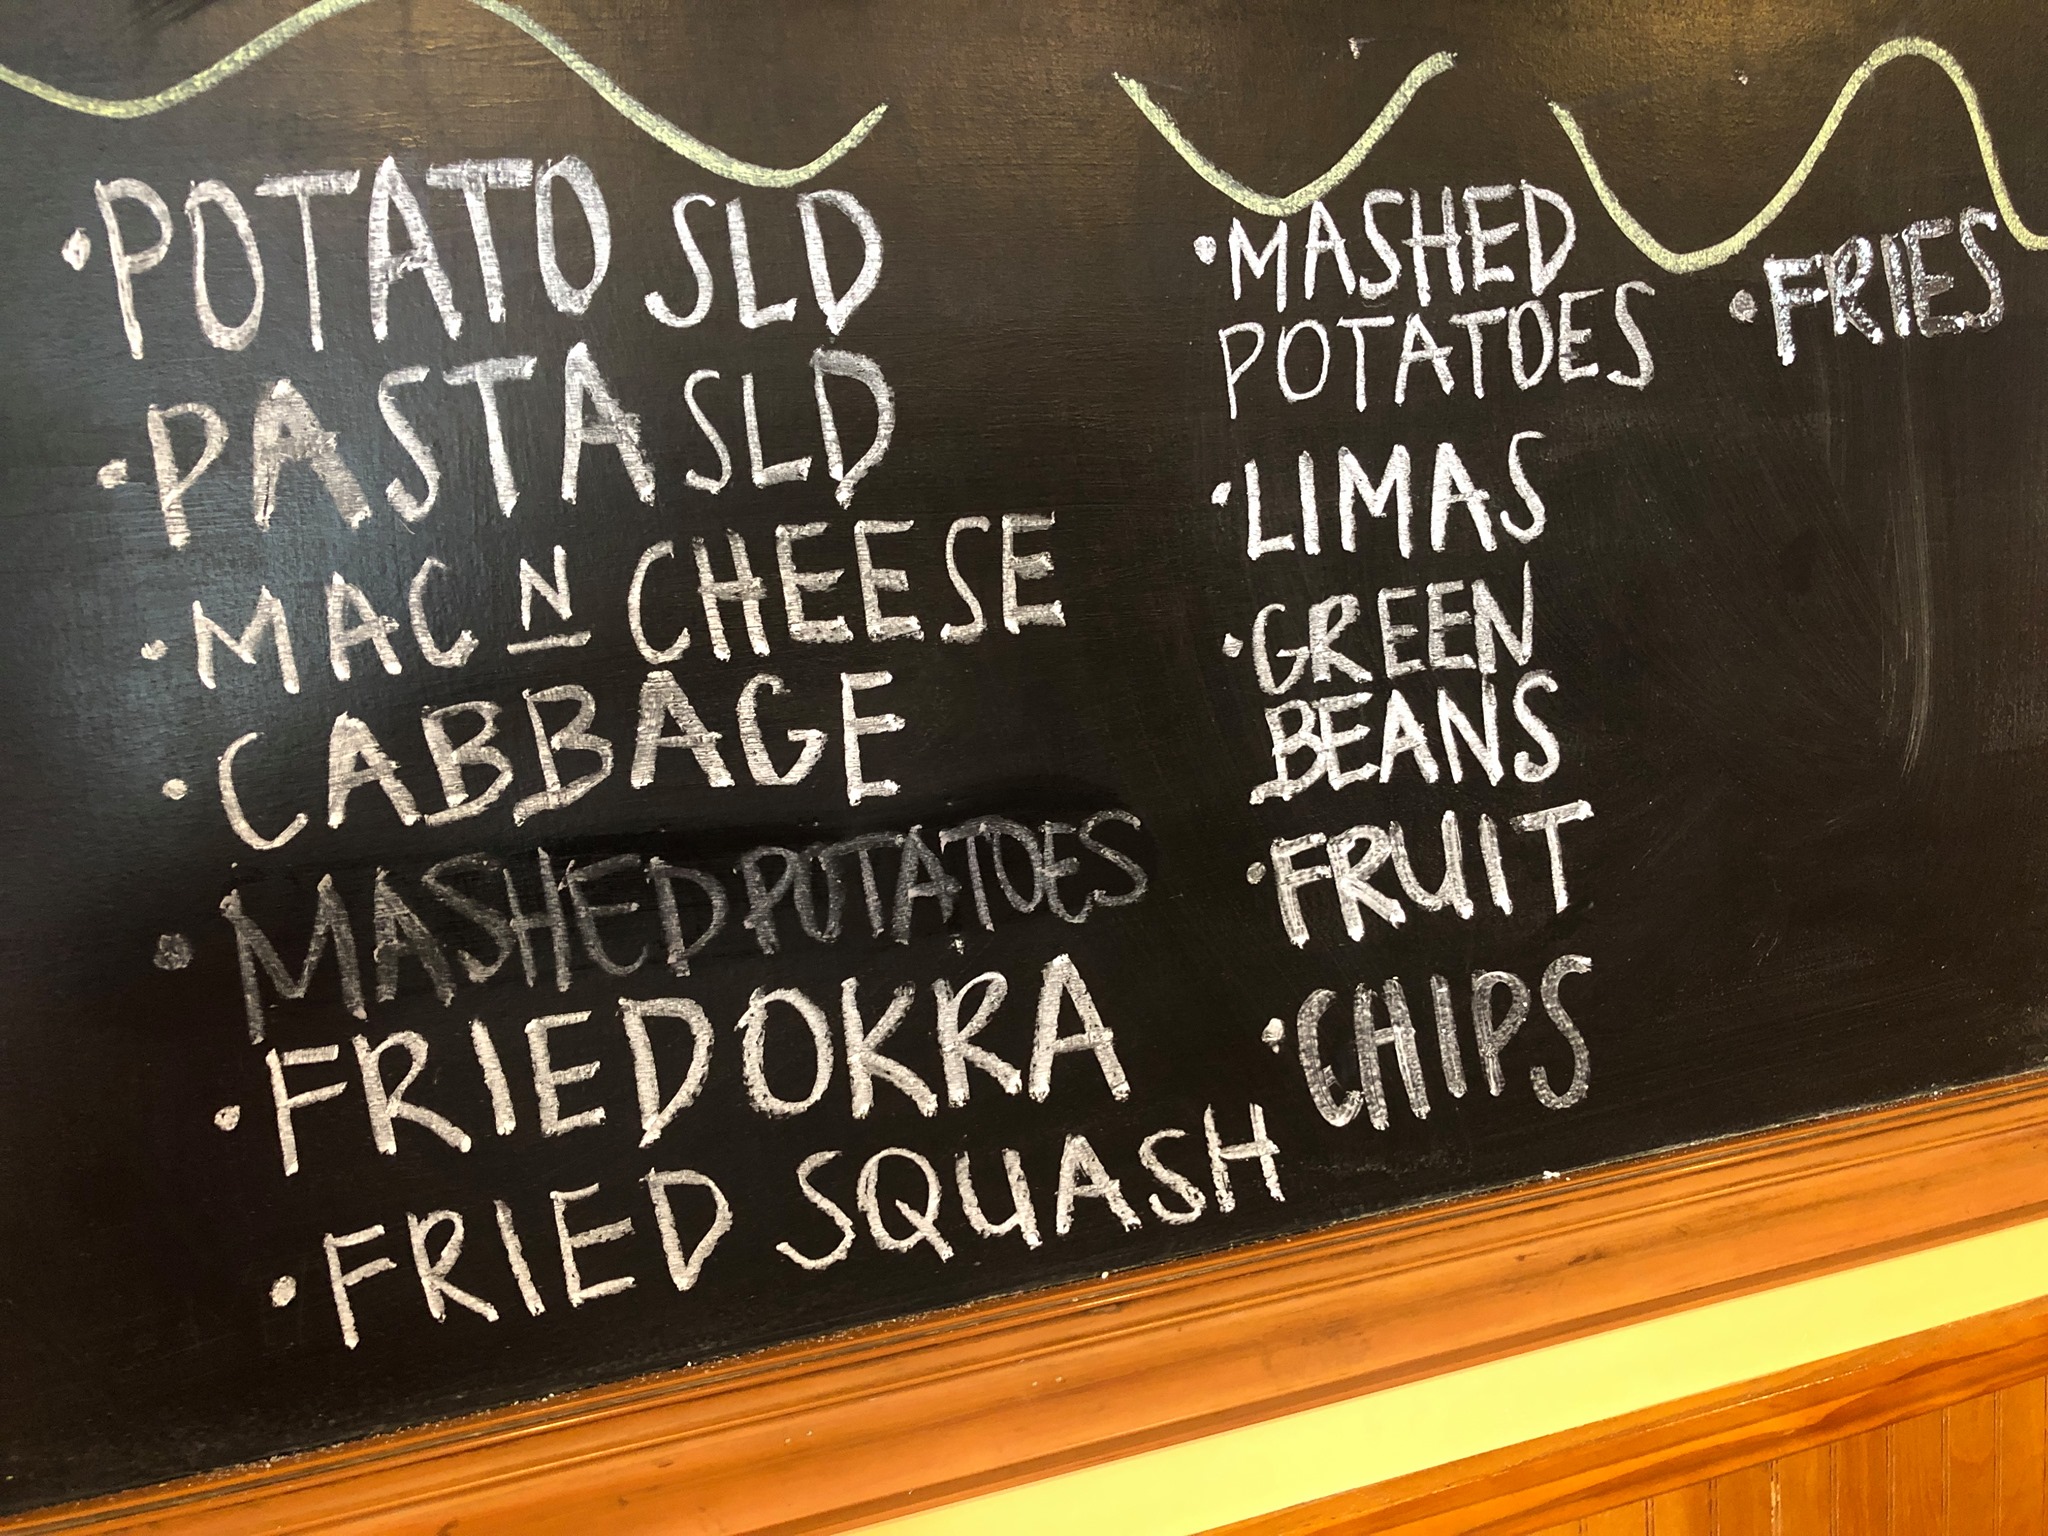 • POTATO SLD
• PASTA SLD
• MAC N CHEESE
• CABBAGE
• MASHED POTATOES
• FRIED OKRA
• FRIED SQUASH
• MASHED
POTATOES
• LIMAS
• GREEN
BEANS
• FRUIT
• CHIPS
• FRIES